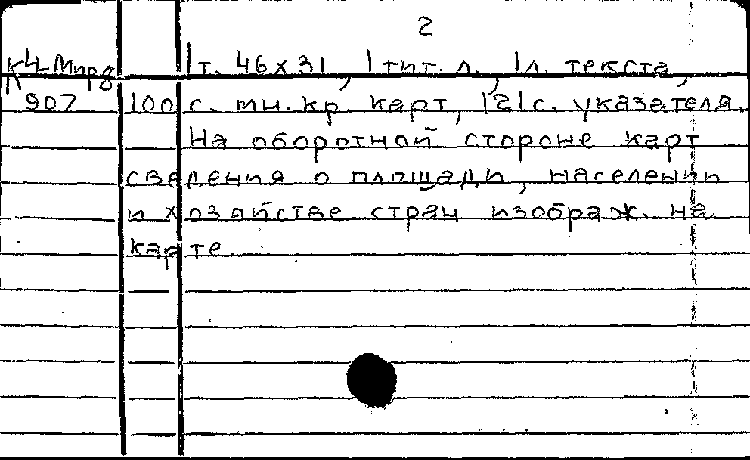 2
К4-Мира 1т. 46х31, 1 тит. л., 1л. текста,
907 100 с. мн. кр. карт, 121с. указателя.
На оборотной стороне карт
сведения о площади, населении
и хозяйстве стран изображ. на
карте